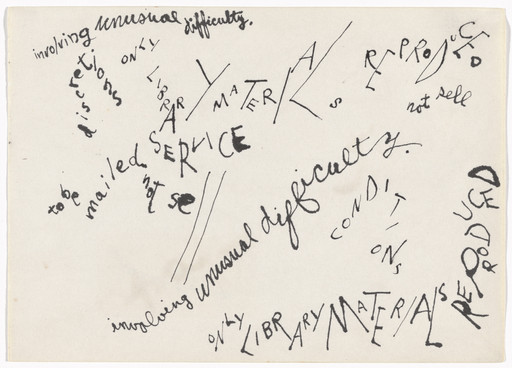 involving unusual difficulty.
discretions
ONLY
LIBRARY MATERIALS
REPRODUCED
not sell
SERVICE
to be mailed
not sell
involving unusual difficulty.
CONDITIONS
ONLY LIBRARY MATERIALS
REPRODUCED